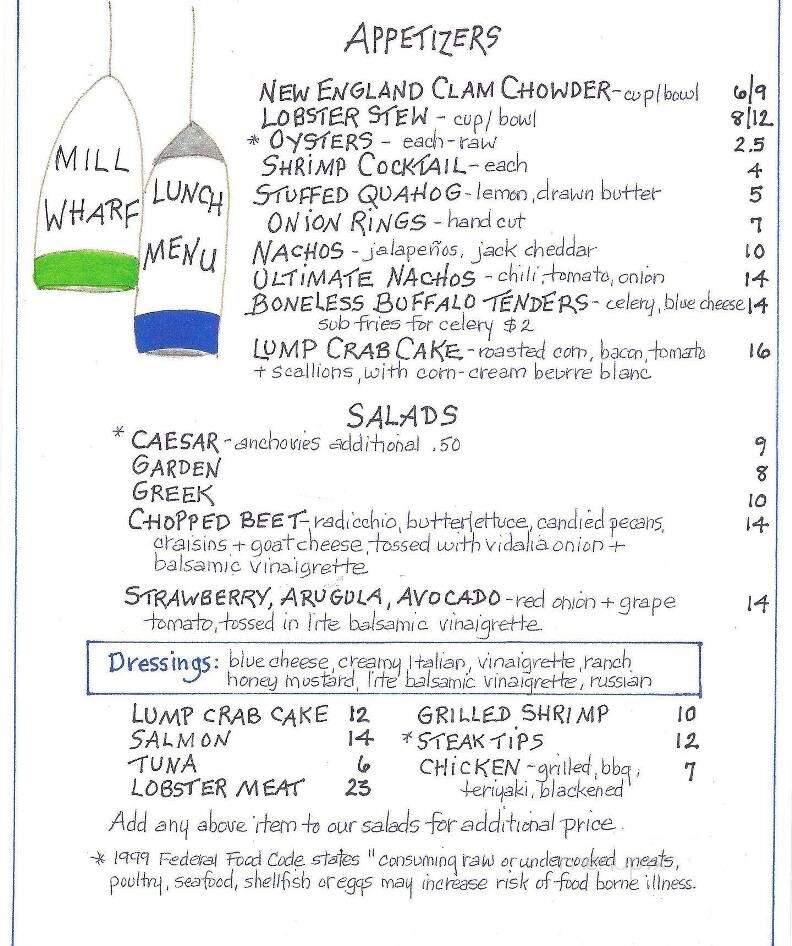 MILL
WHARF
LUNCH
MENU
APPETIZERS
NEW ENGLAND CLAM CHOWDER - cup/bowl 6/9
LOBSTER STEW - cup/bowl 8/12
* OYSTERS - each - raw 2.5
SHRIMP COCKTAIL - each 4
STUFFED QUAHOG - lemon, drawn butter 5
ONION RINGS - hand cut 7
NACHOS - jalapeños, jack cheddar 10
ULTIMATE NACHOS - chili, tomato, onion 14
BONELESS BUFFALO TENDERS - celery, blue cheese 14
sub fries for celery $2
LUMP CRAB CAKE - roasted corn, bacon, tomato 16
+ scallions, with corn-cream beurre blanc
SALADS
* CAESAR - anchovies additional .50 9
GARDEN 8
GREEK 10
CHOPPED BEET - radicchio, butter lettuce, candied pecans, 14
craisins + goat cheese, tossed with vidalia onion +
balsamic vinaigrette
STRAWBERRY, ARUGULA, AVOCADO - red onion + grape 14
tomato, tossed in lite balsamic vinaigrette
Dressings: blue cheese, creamy Italian, vinaigrette, ranch
honey mustard, lite balsamic vinaigrette, russian
LUMP CRAB CAKE 12 GRILLED SHRIMP 10
SALMON 14 * STEAK TIPS 12
TUNA 6 CHICKEN - grilled, bbq, 7
LOBSTER MEAT 23 teriyaki, blackened
Add any above item to our salads for additional price.
* 1999 Federal Food Code states "consuming raw or undercooked meats,
poultry, seafood, shellfish or eggs may increase risk of food borne illness.